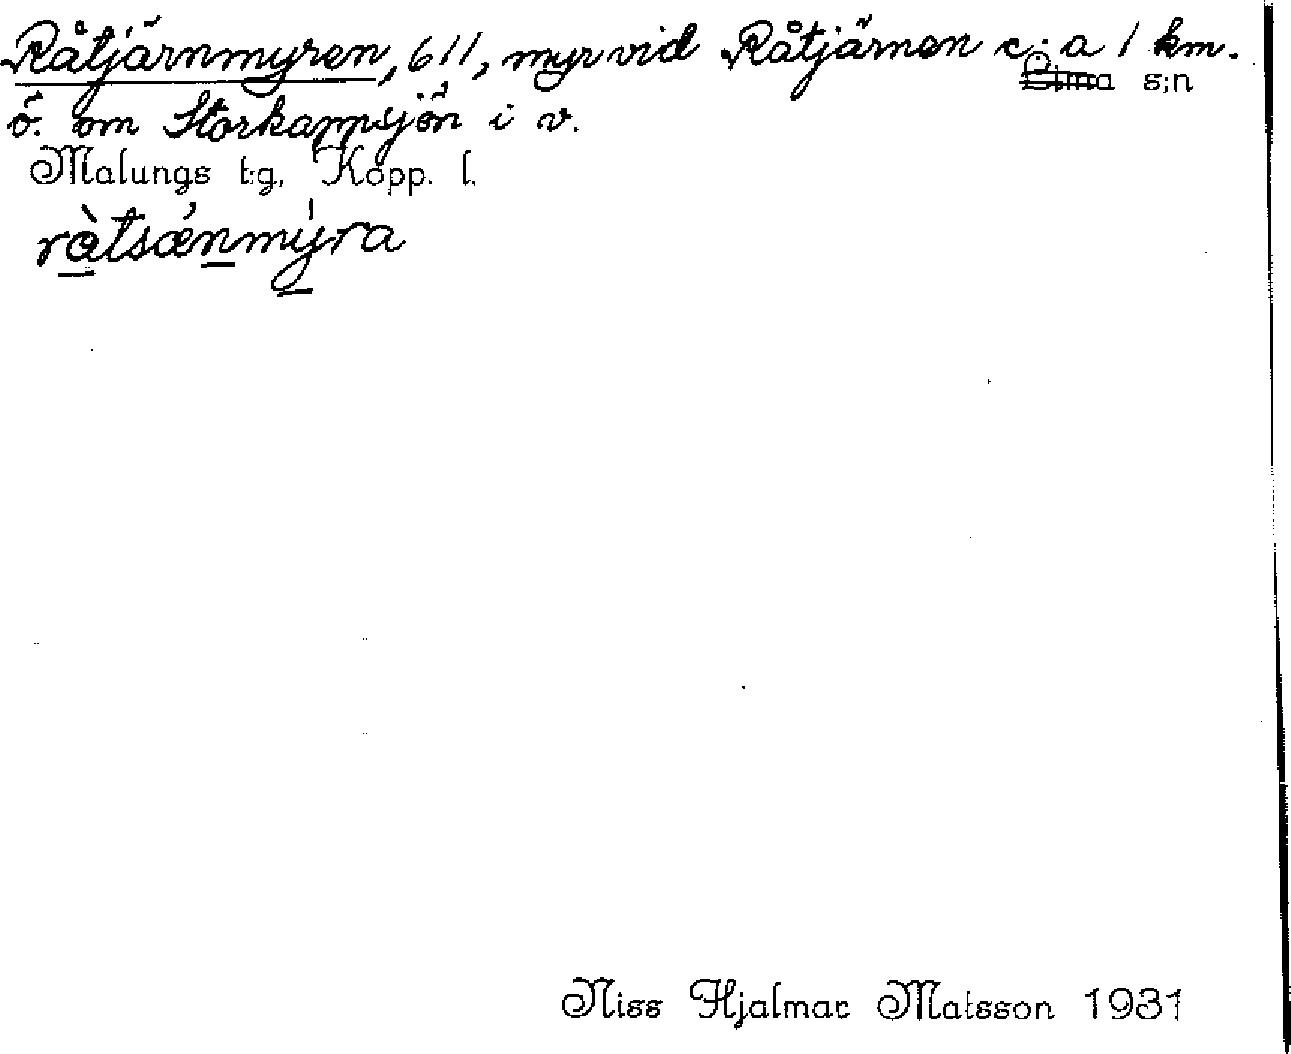 Råtjärnmyren, 611, myr vid Råtjärnen c:a 1 km.
Lima s:n
ö. om Storkappsjön i v.
Malungs t:g, Kopp. l.
ràtsǽnmýra
Niss Hjalmar Matsson 1931